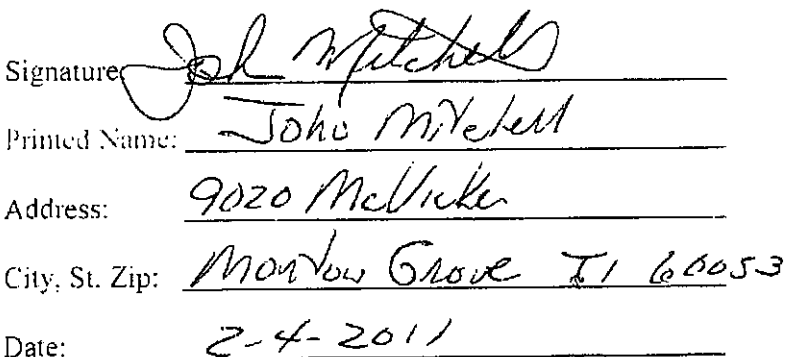 Signature: John Mitchell
Printed Name: John Mitchell
Address: 9020 McVicker
City, St. Zip: Morton Grove Il 60053
Date: 2-4-2011